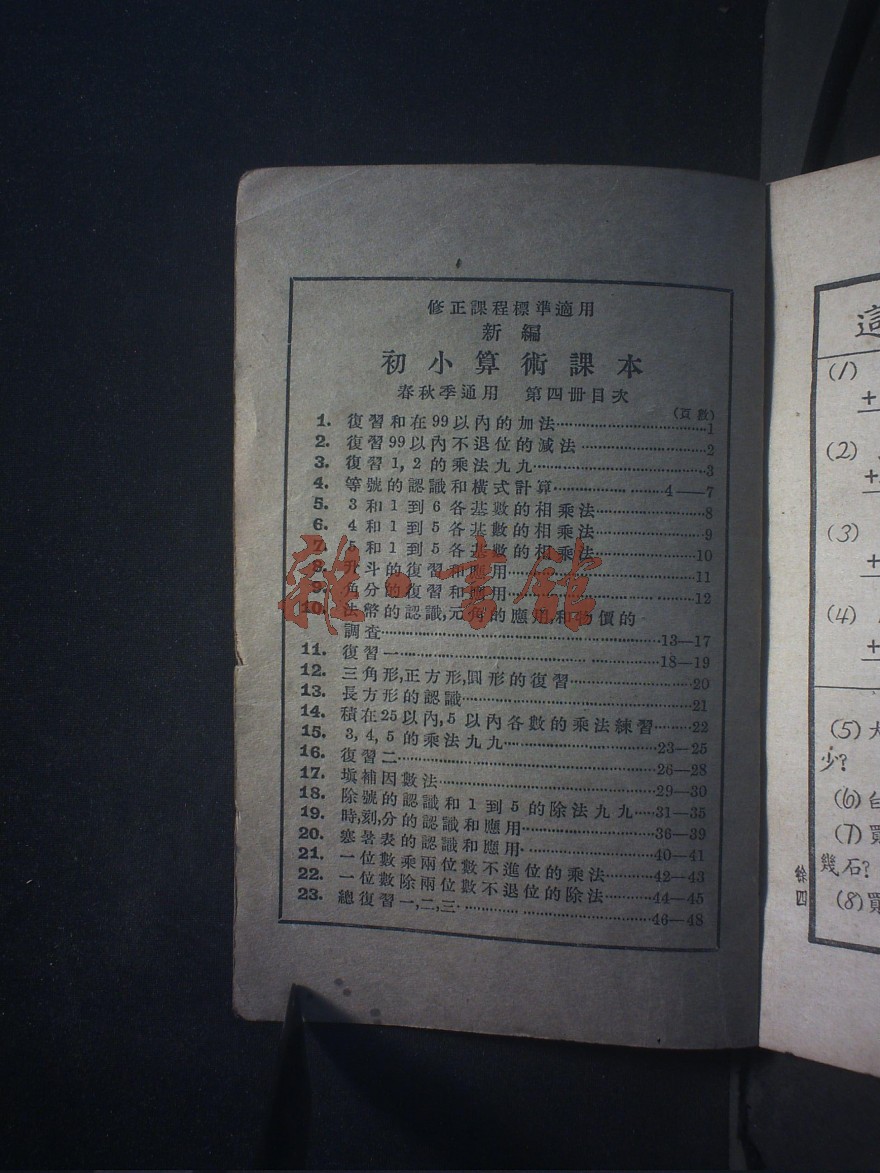 修正課程標準適用
新編
初小算術課本
春秋季通用 第四冊目次
(頁數)
1. 復習和在99以內的加法……1
2. 復習99以內不退位的減法……2
3. 復習1,2的乘法九九……3
4. 等號的認識和橫式計算……4—7
5. 3和1到6各基數的相乘法……8
6. 4和1到5各基數的相乘法……9
7. 5和1到5各基數的相乘法……10
8. 升斗的復習和應用……11
9. 角分的復習和應用……12
10. 法幣的認識,元角的應用,和物價的
調查……13—17
11. 復習一……18—19
12. 三角形,正方形,圓形的復習……20
13. 長方形的認識……21
14. 積在25以內,5以內各數的乘法練習……22
15. 3,4,5的乘法九九……23—25
16. 復習二……26—28
17. 塡補因數法……29—30
18. 除號的認識和1到5的除法九九……31—35
19. 時,刻,分的認識和應用……36—39
20. 寒暑表的認識和應用……40—41
21. 一位數乘兩位數不進位的乘法……42—43
22. 一位數除兩位數不退位的除法……44—45
23. 總復習一,二,三……46—48
雜·書館
這
(1)
+
(2)
+
(3)
+
(4)
+
(5)大
少?
(6)
(7)買
幾石?
(8)買
四